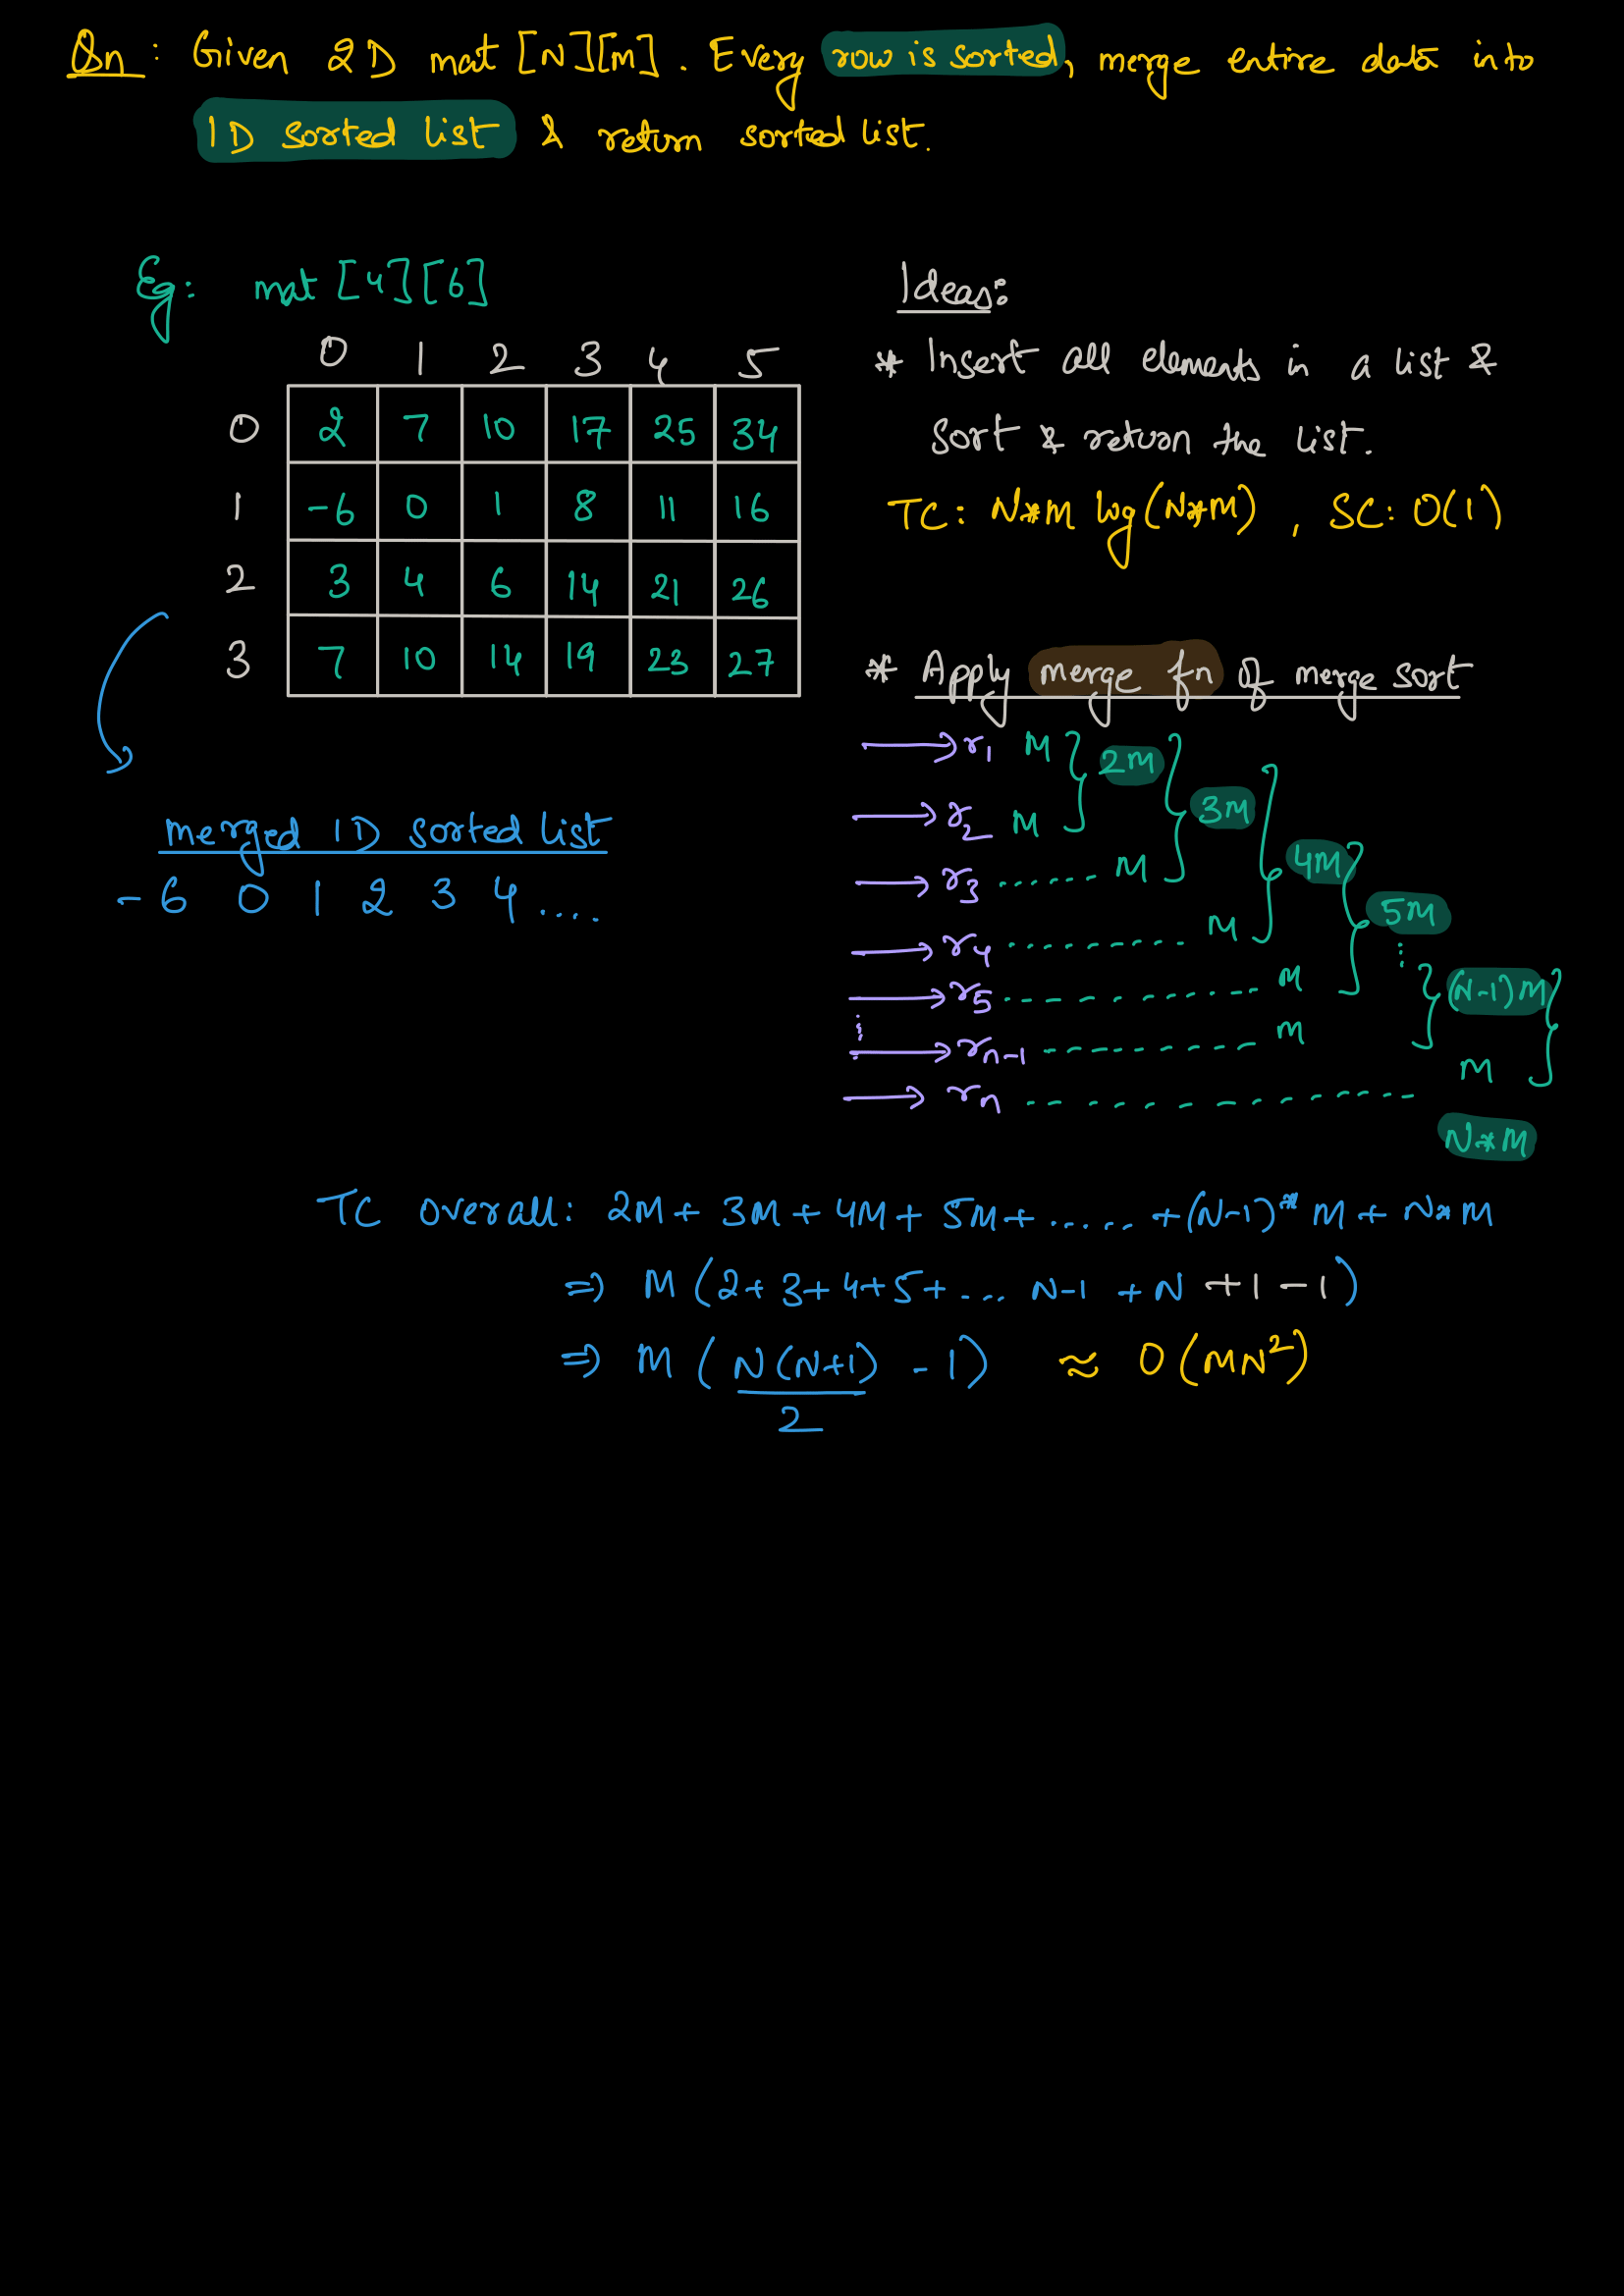 Qn : Given 2D mat [N][M]. Every row is sorted, merge entire data into
1D sorted list & return sorted list.
Eg: mat [4][6]
0 1 2 3 4 5
0 2 7 10 17 25 34
1 -6 0 1 8 11 16
2 3 4 6 14 21 26
3 7 10 14 19 23 27
merged 1D sorted list
-6 0 1 2 3 4 ....
Ideas:
* Insert all elements in a list &
sort & return the list.
TC: N*M log(N*M) , SC: O(1)
* Apply merge fn of merge sort
→ r1 M } 2M } 3M } 4M } 5M
→ r2 M
→ r3 ...... M
→ r4 ......... M
→ r5 ........... M } (N-1)M }
→ rn-1 .......... M
→ rn .............. M
N*M
TC overall: 2M + 3M + 4M + 5M + ...... + (N-1)* M + N*M
⇒ M (2+3+4+5+... N-1 + N +1 -1)
⇒ M ( N(N+1) - 1) ≈ O(MN²)
2